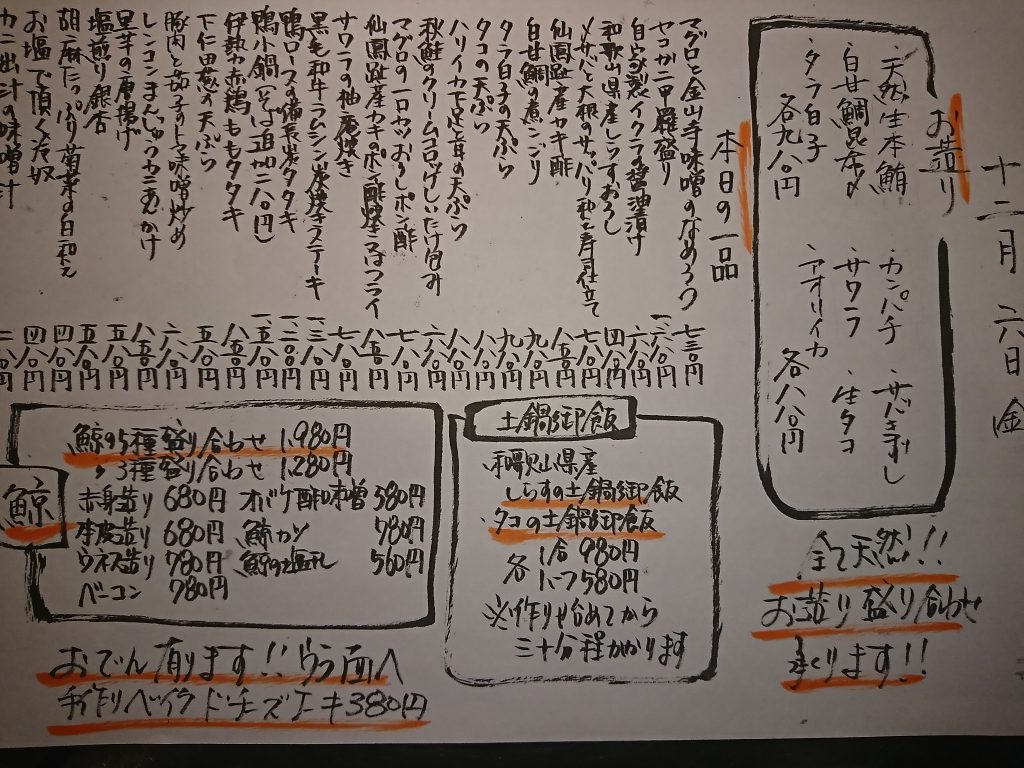 十二月 六日 金
お造り
・天然生本鮪
・白甘鯛昆布〆
・タラ白子
各九八〇円
・カンパチ ・サバきずし
・サワラ ・生タコ
・アオリイカ
各八八〇円
全て天然!!
お造り盛り合わせ
承ります!!
本日の一品
マグロと金山寺味噌のなめろう 七三〇円
セコガニ甲羅盛り 一、六八〇円
自家製イクラの醤油漬け 一、三八〇円
和歌山県産しらすおろし 四八〇円
〆サバと大根のサッパリ和え寿司仕立て 七八〇円
仙鳳趾産カキ酢 八五〇円
白甘鯛の煮こごり
タラ白子の天ぷら 九八〇円
タコの天ぷら 八八〇円
ハリイカ下足と耳の天ぷら
秋鮭のクリームコロッケしいたけ包み 六八〇円
マグロの一口カツおろしポン酢 七八〇円
仙鳳趾産カキのポン酢煙 or フライ 八五〇円
サワラの柚庵焼き 七八〇円
黒毛和牛ランシン炭焼きステーキ
鴨ロースの備長炭タタキ
鴨小鍋(そば追加二八〇円)
伊勢赤鶏ももタタキ 八五〇円
下仁田葱の天ぷら 五八〇円
豚肉と茄子の味噌炒め 六八〇円
レンコンまんじゅうカニあんかけ 八五〇円
里芋の唐揚げ 五八〇円
塩煎り銀杏 五八〇円
胡麻たっぷり菊菜の白和え 四八〇円
お塩で頂く冷奴 四八〇円
カニ出汁の味噌汁 二八〇円
土鍋御飯
和歌山県産
しらすの土鍋御飯
タコの土鍋御飯
各 1合 980円
1.5合 1,580円
※作りや始めてから
三十分程かかります
鯨
鯨の5種盛り合わせ 1,980円
〃 3種盛り合わせ 1,280円
赤身造り 680円 オバケ酢味噌 580円
本皮造り 680円 鯨カツ 780円
ウネス造り 780円 鯨の塩 560円
ベーコン 980円
おでん有ります!! ウラ面へ
手作りベイクドチーズケーキ 380円